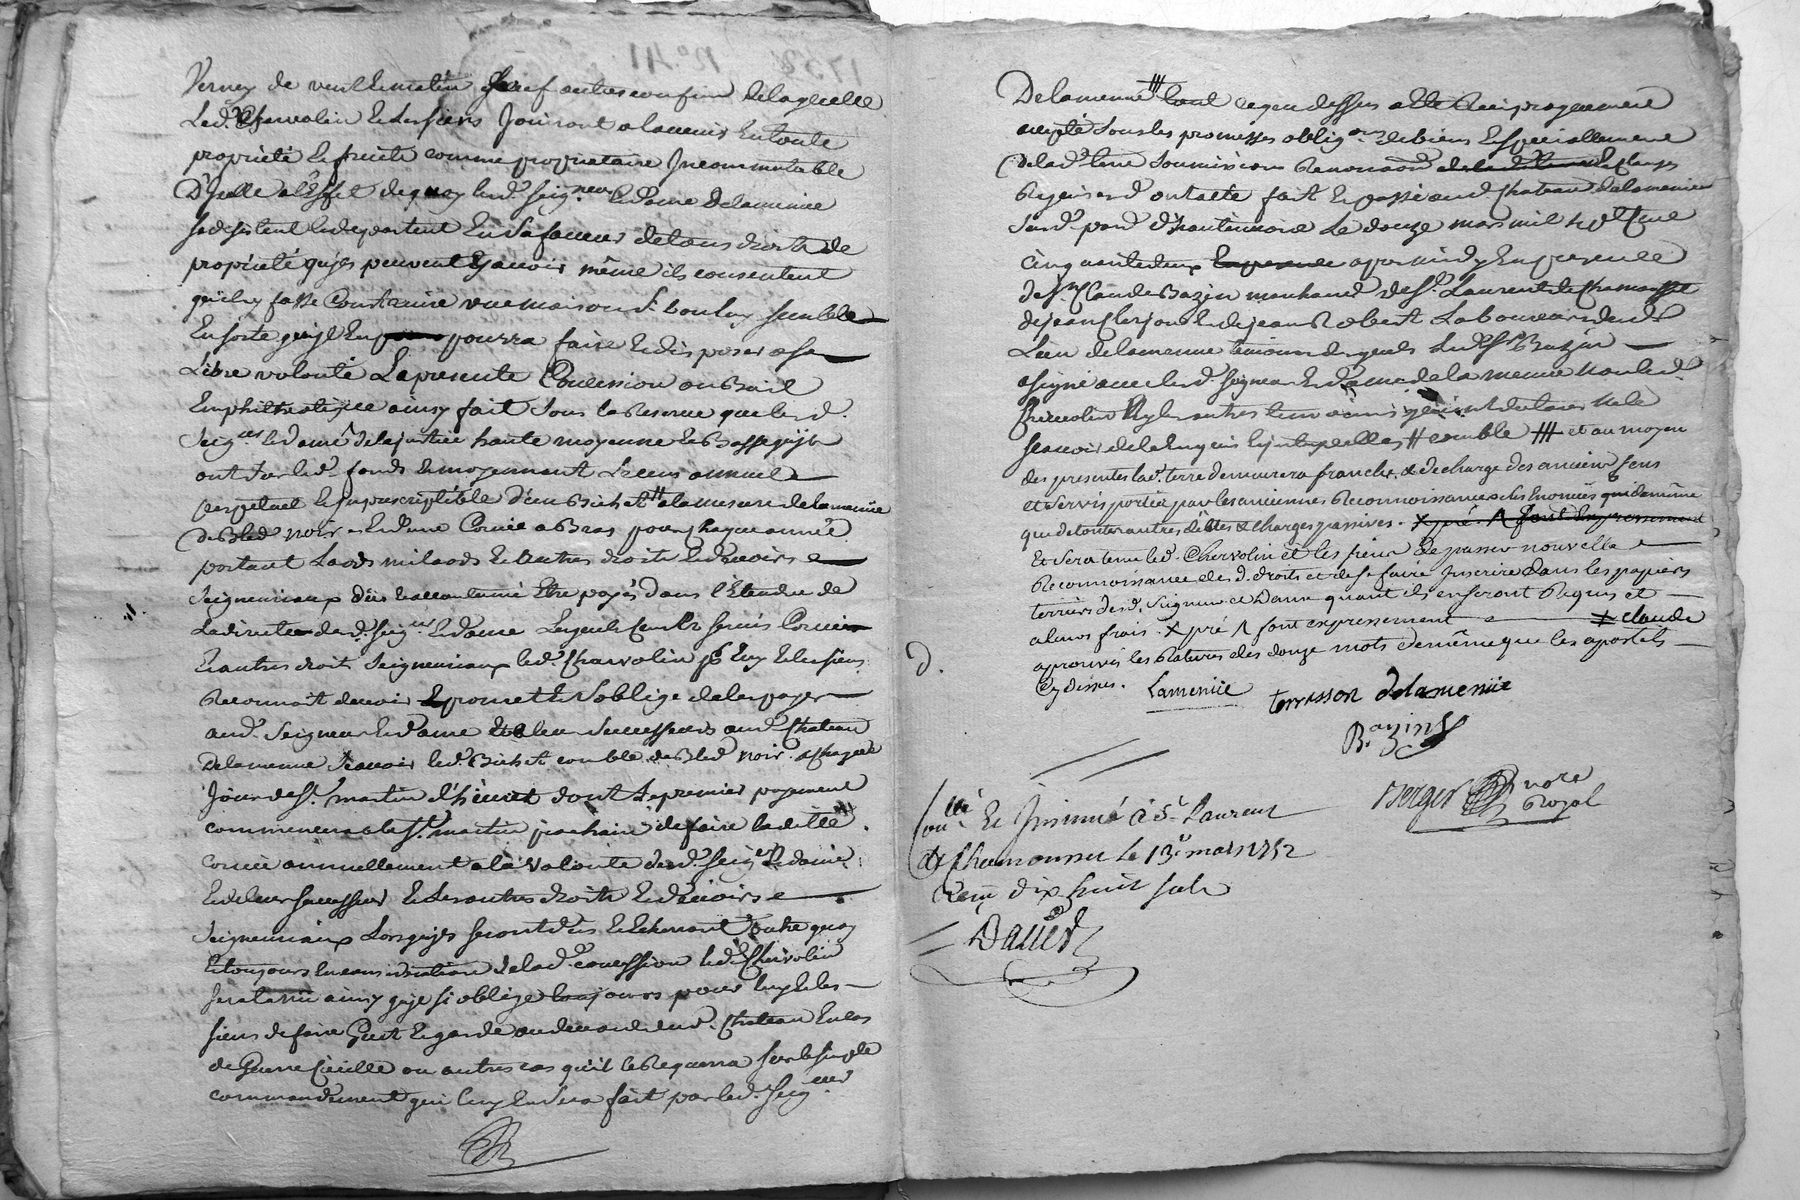 Verney de vent & matin sauf autres confins de laquelle
Led. Chervolin & les siens Jouiront a lavenir En toute
propriété & fruits comme propriétaire Incommutable
D'ycelle a l'Effet de quoy lesd. Seigneur & Dame Delamenüe
se desistent & departent En sa faveur de tous droits de
propriété quils peuvent y avoir même ils consentent
quil y fasse Construire une maison sy bon luy semble
En sorte quyl En pourra faire & disposer a sa
Libre volonté La presente Concession ou Bail
Emphiteotique ainsy fait sous la Reserve que lesd.
Seigrs & dame de la justice haute moyenne & Basse quils
ont sur led. fonds & moyennant Le cens annuel
perpetuel & Imprescriptible d'un Bichet # a la mesure de Lamenüe
de Bled noir & d'une Corvée a Bras pour Chaque année
portant Laods milaods & autres droits & devoirs
Seigneuriaux dûs & accoutumé Etre payés dans l'Etendue de
La directe desd. Seigrs & dame Lesquels Cens & servis Corvée
& autres droits Seigneuriaux led. Chervolin pr Luy & les siens
Reconnoît devoir & promet & s'oblige de les payer
aud. Seigneur & dame & a leurs Successeurs aud. Chateau
Delamenue sçavoir led. Bichet comble de Bled noir a chaque
Jour de St. martin d'hiver dont le premier payement
commencera a la St. martin prochain & de faire laditte
corvée annuellement a la volonté desd. Seigr & dame
& de leurs successeurs & les autres droits & devoirs
Seigneuriaux Lorsquils seront dus & Echerront Outre quoy
& toujours En consideration de lad. concession led. Chervolin
sera tenu ainsy quil s'y oblige toujours pour luy & les
siens de faire Guet & garde au devant dud. Chateau En cas
de Guerre Civille ou autres cas qu'il le Requerra sur le simple
commandement qui luy En sera fait par led. Seigneur
Delamenüe ### tout ce que dessus a été Reciproquement
accepté sous les promesses obligons de biens & specialement
de lad. terre soumissions Renonons & Clauses
Requises & ont été fait & passé aud. Chateau Delamenüe
le douze mars mil sept Cent
cinquante deux apres midy En presence
de Sr. Claude Bazin marchand de St. Laurent de Chamousset
de jean & de jean Robert Laboureurs dud.
Lieu de Lamenue temoins Lesquels led. Sr Bazin
a signé avec lesd. Seigneur & Dame de la menüe non led.
Chervolin Ny les autres temoins
sçavoir de ce Enquis & Interpellés # comble ### et au moyen
des presentes lad. terre demeurera franche & décharge des anciens Cens
et Servis portés par les anciennes Reconnoissances
que de toutes autres dêttes & charges passives. X pré. Λ font Expressement
Et Sera tenu led. Chervolin et les siens de passer nouvelle
Reconnoissance des d. droits et de se faire Inscrire dans les papiers
terriers desd. Seigneur et Dame quant ils En seront Requis et
a leurs frais. X pré Λ font expressement ‡ claude
aprouvés les Ratures des douze mots de même que les apostils
Cy dessus. Lamenüe terrasson delamenüe
Bazin
Berger nore
Royal
D.
Conllé Et Insinué à St. Laurent
de Chamousset le 13e mars 1752
Recu dix huit sols
Dauer
1752 No. 41